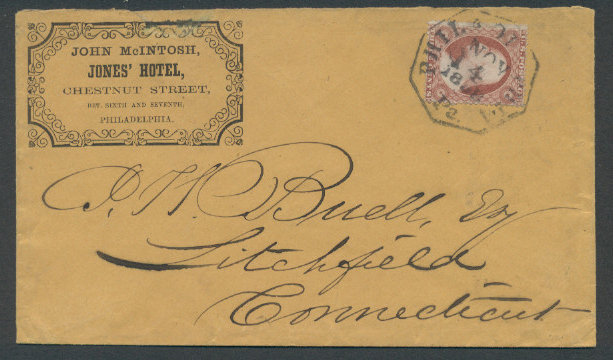 JOHN McINTOSH,
JONES' HOTEL,
CHESTNUT STREET,
BET. SIXTH AND SEVENTH,
PHILADELPHIA.
NOV
Pa.
J. W. Buell, Esq
Litchfield
Connecticut